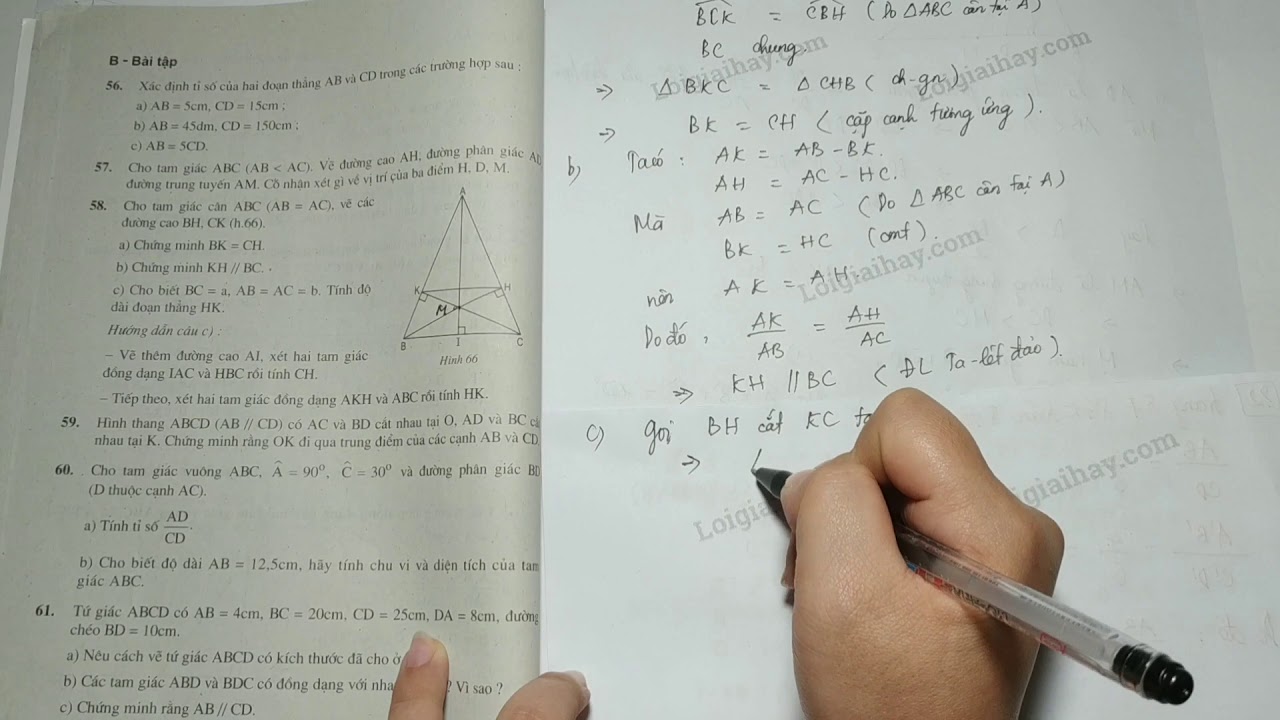 B - Bài tập
56. Xác định tỉ số của hai đoạn thẳng AB và CD trong các trường hợp sau :
a) AB = 5cm, CD = 15cm ;
b) AB = 45dm, CD = 150cm ;
c) AB = 5CD.
57. Cho tam giác ABC (AB < AC). Vẽ đường cao AH, đường phân giác AD,
đường trung tuyến AM. Có nhận xét gì về vị trí của ba điểm H, D, M.
58. Cho tam giác cân ABC (AB = AC), vẽ các
đường cao BH, CK (h.66).
a) Chứng minh BK = CH.
b) Chứng minh KH // BC.
c) Cho biết BC = a, AB = AC = b. Tính độ
dài đoạn thẳng HK.
Hướng dẫn câu c) :
– Vẽ thêm đường cao AI, xét hai tam giác
đồng dạng IAC và HBC rồi tính CH.
– Tiếp theo, xét hai tam giác đồng dạng AKH và ABC rồi tính HK.
A
K
H
M
B
I
C
Hình 66
59. Hình thang ABCD (AB // CD) có AC và BD cắt nhau tại O, AD và BC
nhau tại K. Chứng minh rằng OK đi qua trung điểm của các cạnh AB và CD
60. Cho tam giác vuông ABC, Â = 90°, Ĉ = 30° và đường phân giác BD
(D thuộc cạnh AC).
a) Tính tỉ số AD/CD.
b) Cho biết độ dài AB = 12,5cm, hãy tính chu vi và diện tích của tam
giác ABC.
61. Tứ giác ABCD có AB = 4cm, BC = 20cm, CD = 25cm, DA = 8cm, đường
chéo BD = 10cm.
a) Nêu cách vẽ tứ giác ABCD có kích thước đã cho ở
b) Các tam giác ABD và BDC có đồng dạng với ? Vì sao ?
c) Chứng minh rằng AB // CD.
BCK = CBH (Do △ABC cân tại A)
BC chung
=> △ BKC = △ CHB ( ch-gn )
=> BK = CH ( cặp cạnh tương ứng ).
b) Ta có : AK = AB - BK.
AH = AC - HC.
Mà AB = AC (Do △ ABC cân tại A)
BK = HC (cmt).
nên AK = AH.
Do đó, AK/AB = AH/AC
=> KH // BC ( ĐL Ta-lét đảo ).
c) gọi BH cắt KC
=>
Loigiaihay.com
Loigiaihay.com
Loigiaihay.com